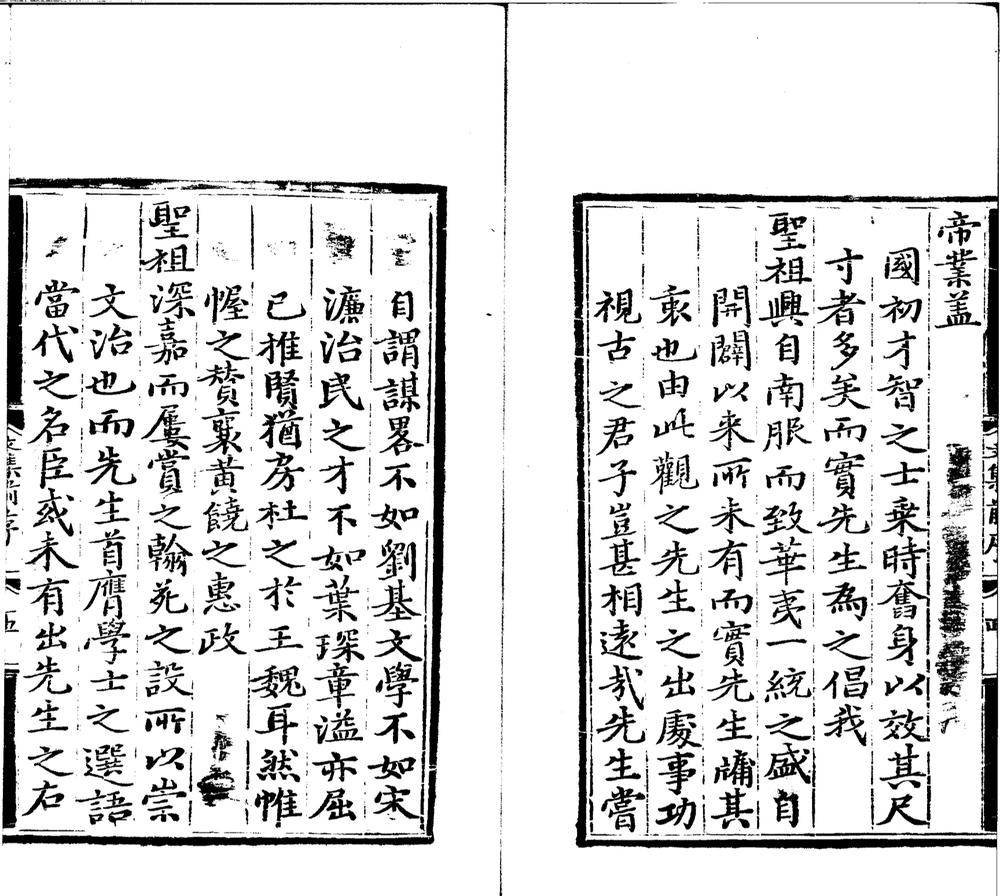 帝業盖
國初才智之士乗時奮身以效其尺
寸者多矣而實先生為之倡我
聖祖興自南服而致華夷一統之盛自
開闢以来所未有而實先生牗其
衷也由此觀之先生之出處事功
視古之君子豈甚相遠㢤先生嘗
自謂謀畧不如劉基文學不如宋
濂治民之才不如葉琛章溢亦屈
已推賢猶房杜之於王魏耳然帷
幄之賛襄黄饒之惠政
聖祖深嘉而屢賞之翰苑之設所以崇
文治也而先生首膺學士之選語
當代之名臣或未有出先生之右
文集前序
五